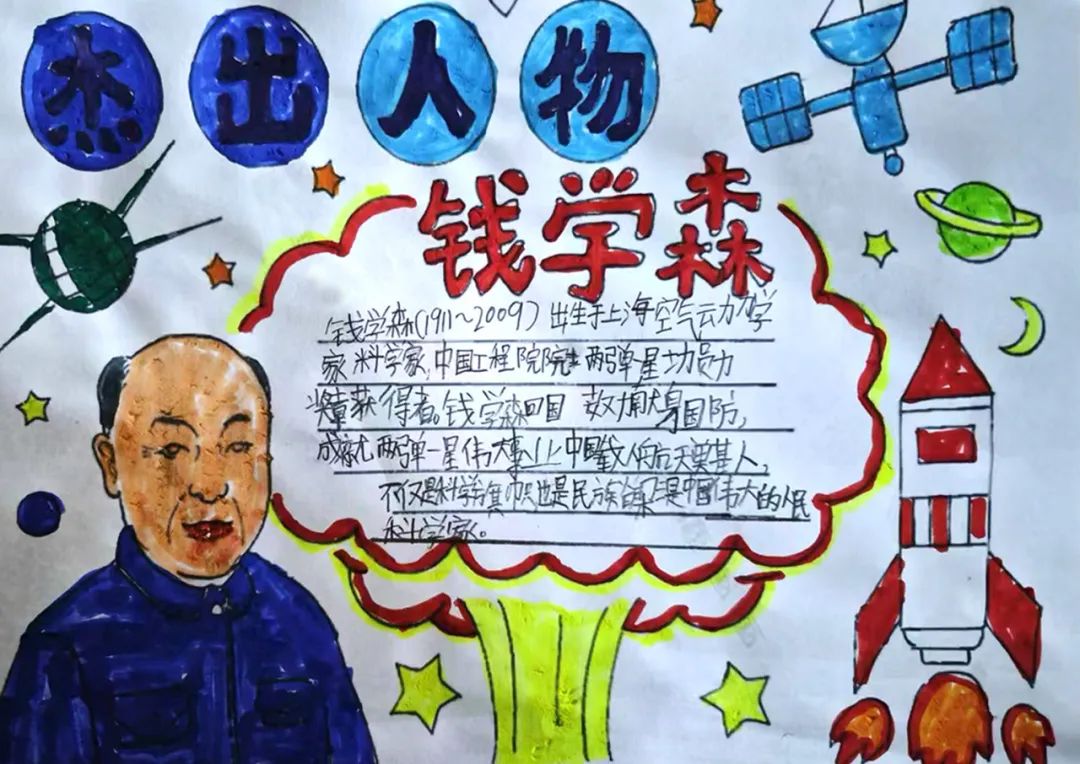 杰出人物
钱学森
钱学森(1911~2009)出生于上海空气动力学
家科学家,中国工程院院士两弹一星功勋
奖章获得者。钱学森回国 效力献身国防,
成就两弹一星伟大事业中国载人航天奠基人,
不仅是科学旗帜也是民族 是中国伟大的人民
科学家。